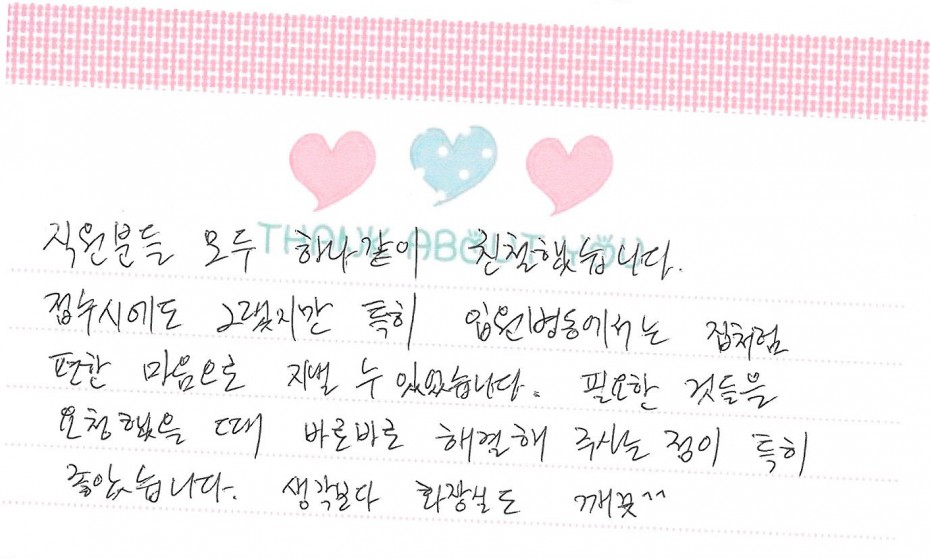 THANK ABOUT YOU
직원분들 모두 하나같이 친절했습니다.
접수시에도 그랬지만 특히 입원병동에서는 집처럼
편한 마음으로 지낼 수 있었습니다. 필요한 것들을
요청했을 때 바로바로 해결해 주시는 점이 특히
좋았습니다. 생각보다 화장실도 깨끗^^